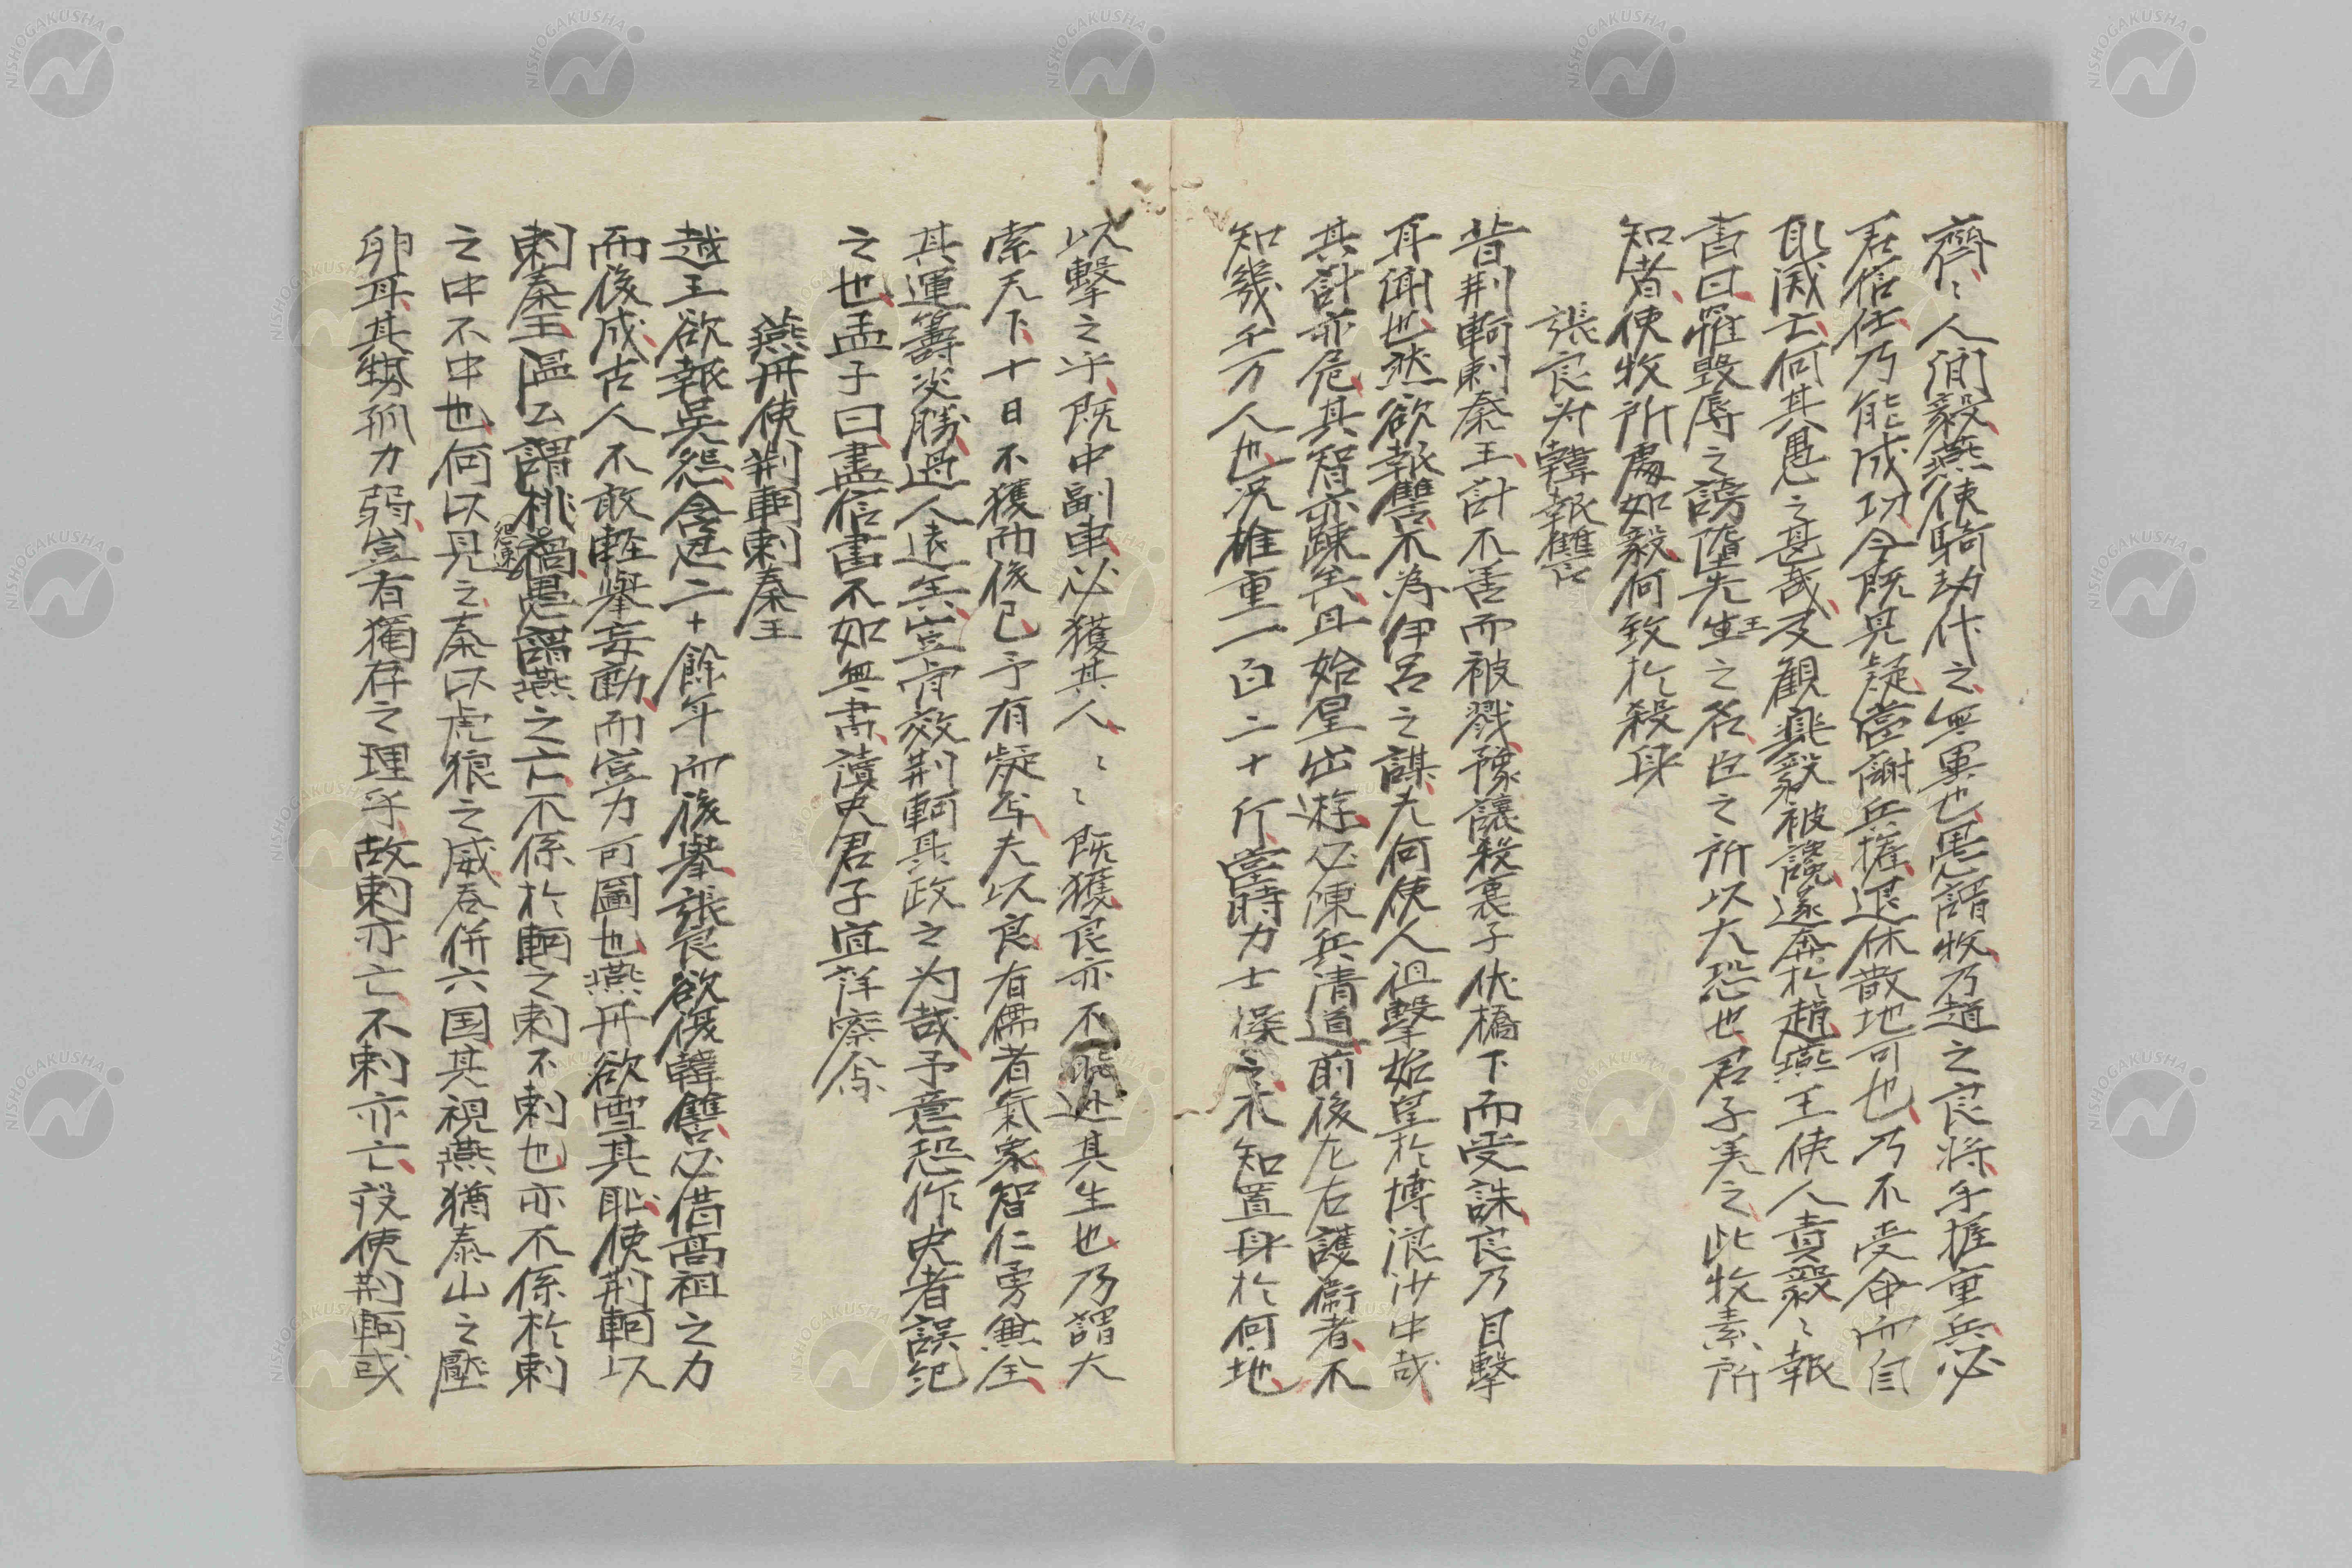 齊〻人間毅、燕使騎劫代之、無異也、愚謂牧乃趙之良将、手握重兵、必
君信任、乃能成功、今既見疑、當謝兵權、退休散地可也、乃不受命、而自
取滅亡、何其愚之甚哉、又観樂毅被讒、遂奔於趙、燕王使人責毅、〻報
書曰、罹毀辱之謗、墮先生王之名、臣之所以大恐也、君子美之、此牧素所
知者、使牧所處如毅、何致於殺身
張良为韓報讐
昔荆軻刺秦王、計不善而被戮、豫讓殺襄子、伏橋下而受誅、良乃目擊
耳聞也、然欲報讐、不為伊呂之謀、夫何使人狙擊始皇於博浪沙中哉、
其計亦危、其智亦踈矣、且始皇出遊、必陳兵清道、前後左右護衛者、不
知幾千万人也、况椎重一百二十斤、當時力士操之、未知置身於何地
以擊之乎、既中副車、必獲其人、〻既獲、良亦不能逃其生也、乃謂大
索天下、十日不獲而後已、予有疑焉、夫以良有儒者氣象、智仁勇無全、
其運籌决勝、過人遠矣、豈肯效荆軻聶政之为哉、予意恐作史者誤紀
之也、孟子曰、盡信書不如無書、讀史君子宜詳察焉
燕丹使荆軻刺秦王
越王欲報吳怨、含忍二十餘年而後舉、張良欲復韓讐、必借高祖之力
而後成、古人不敢輕舉妄動、而豈力可圖也、燕丹欲雪其恥、使荆軻以
刺秦王、温公謂挑禍、愚謂燕之亡、不係於軻之刺不刺也、亦不係於刺
怨速
之中不中也、何以見之、秦以虎狼之威、吞併六国、其視燕猶泰山之壓
卵耳、其勢孤力弱、豈有獨存之理乎、故刺亦亡、不刺亦亡、設使荆軻或